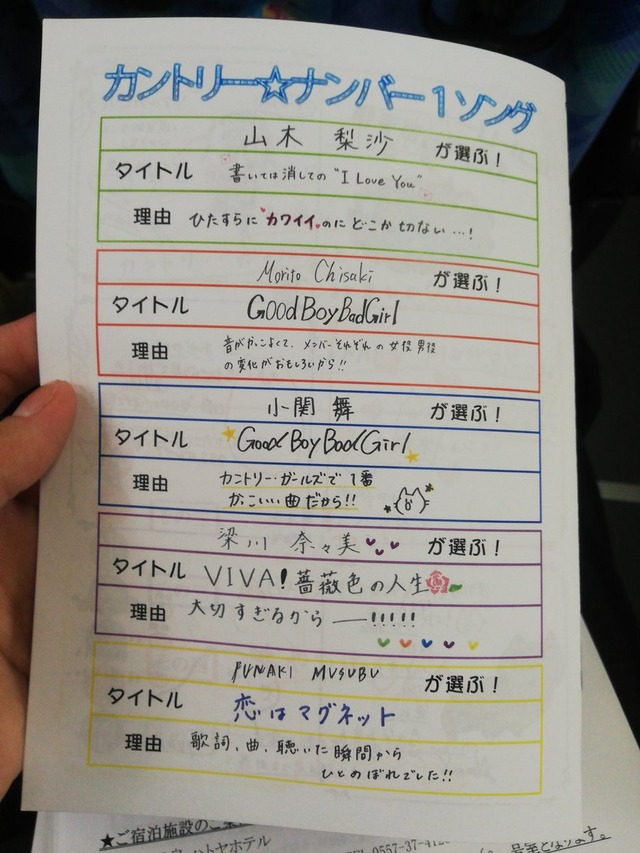 カントリー☆ナンバー1ソング
山木 梨沙 が選ぶ!
タイトル 書いては消しての"I Love You"
理由 ひたすらにカワイイのにどこか切ない…!
Morito Chisaki が選ぶ!
タイトル GOOdBoyBadGirl
理由 音がかっこよくて、メンバーそれぞれの女役男役
の変化がおもしろいから!!
小関 舞 が選ぶ!
タイトル Good Boy Bad Girl
理由 カントリー・ガールズで1番
かっこいい曲だから!!
梁川 奈々美 が選ぶ!
タイトル VIVA!薔薇色の人生
理由 大切すぎるから ―!!!!!
FUNAKI MUSUBU が選ぶ!
タイトル 恋はマグネット
理由 歌詞、曲、聴いた瞬間から
ひとめぼれでした!!
★ご宿泊施設のご案
TEL 0557-37-412
号室となります。
トヤホテル